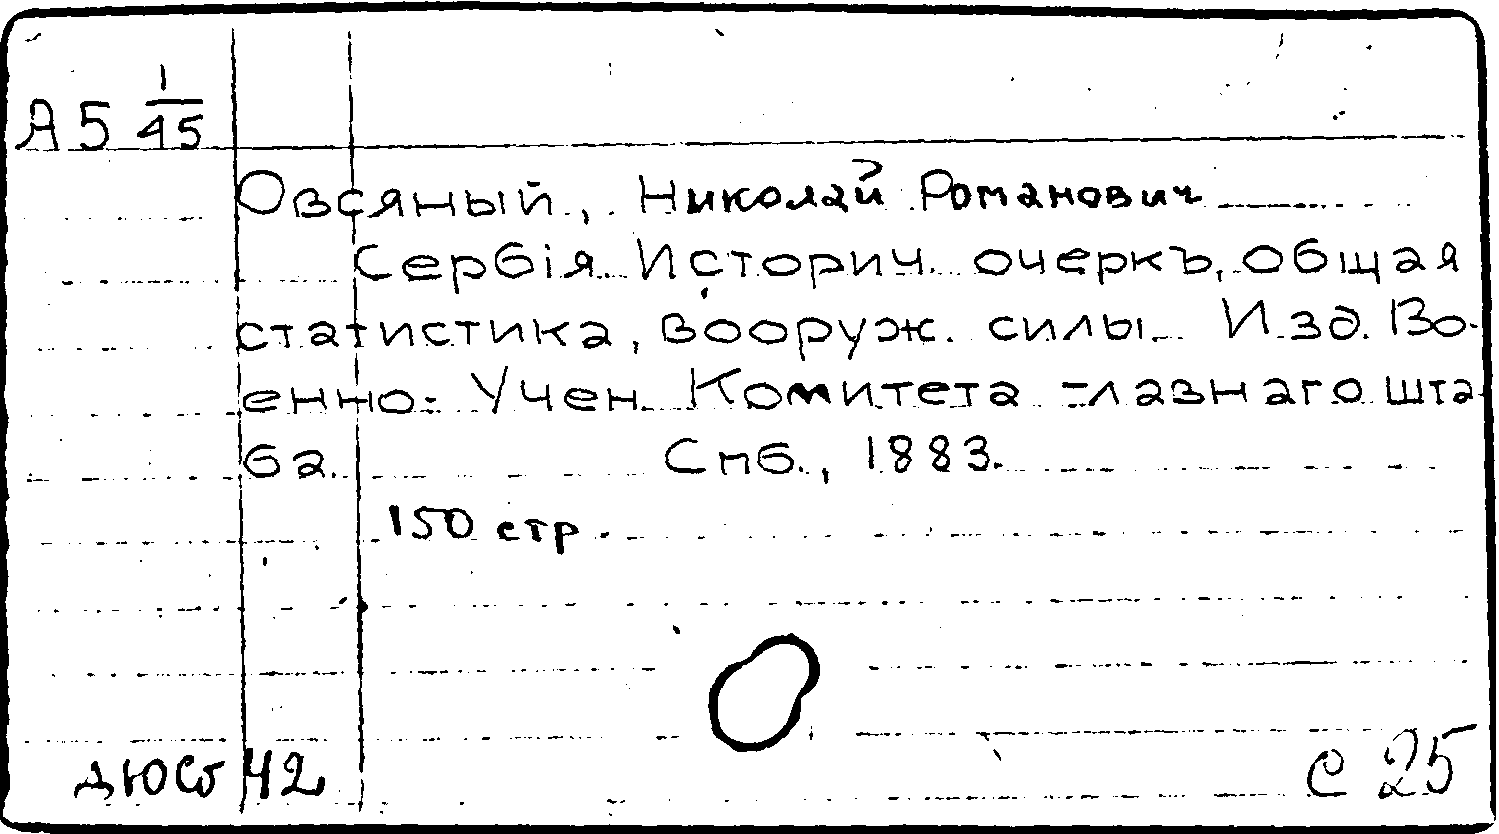 А 5 1/45
Овсяный, Николай Романович
Сербія. Историч. очеркъ, общая
статистика, вооруж. силы. Изд. Во-
енно-Учен. Комитета Главнаго шта-
ба. Спб., 1883.
150 стр.
42
С 25